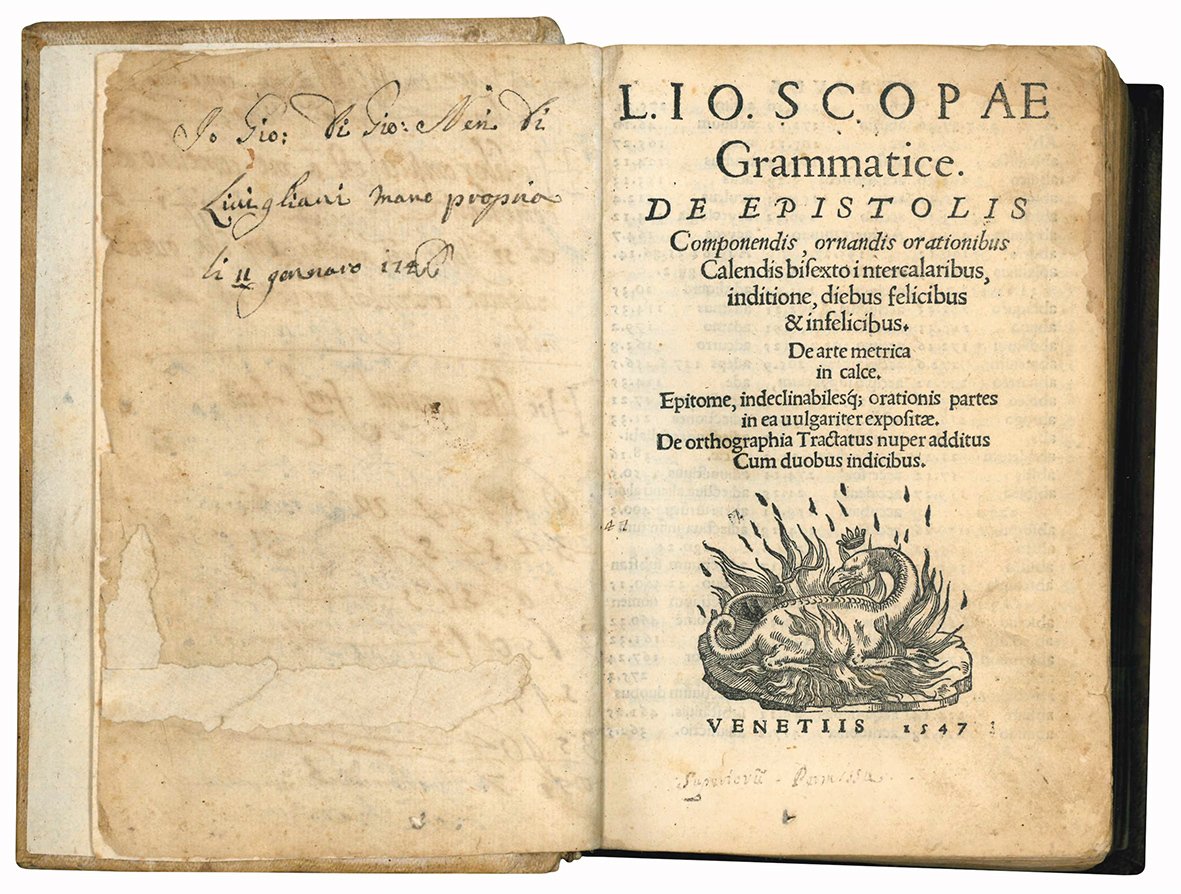 Io Gio: di Gio: Neri di
Liuigliani mano propria
li 11 gennaro
L. IO. SCOPAE
Grammatice.
DE EPISTOLIS
Componendis, ornandis orationibus
Calendis biſexto intercalaribus,
inditione, diebus felicibus
& infelicibus.
De arte metrica
in calce.
Epitome, indeclinabilesq; orationis partes
in ea uulgariter expoſitæ.
De orthographia Tractatus nuper additus
Cum duobus indicibus.
VENETIIS 1547
Superiorũ